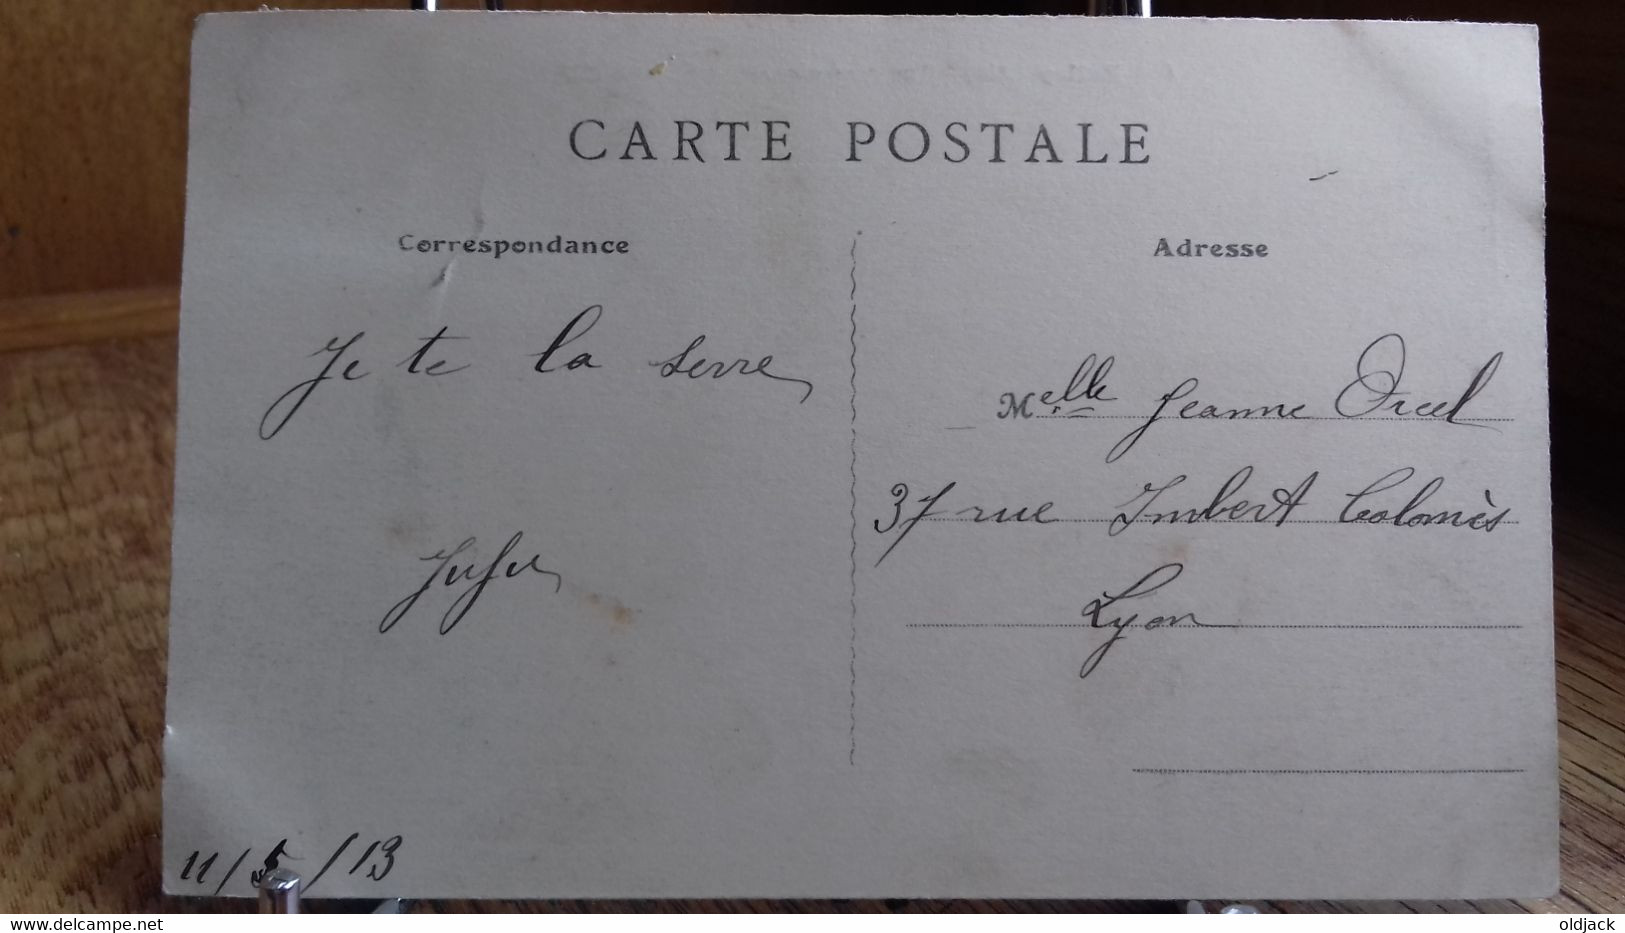 CARTE POSTALE
Correspondance
Adresse
Je te la serre
Juju
11/5/13
Melle Jeanne Orcel
37 rue Imbert Colomès
Lyon
www.delcampe.net
oldjack